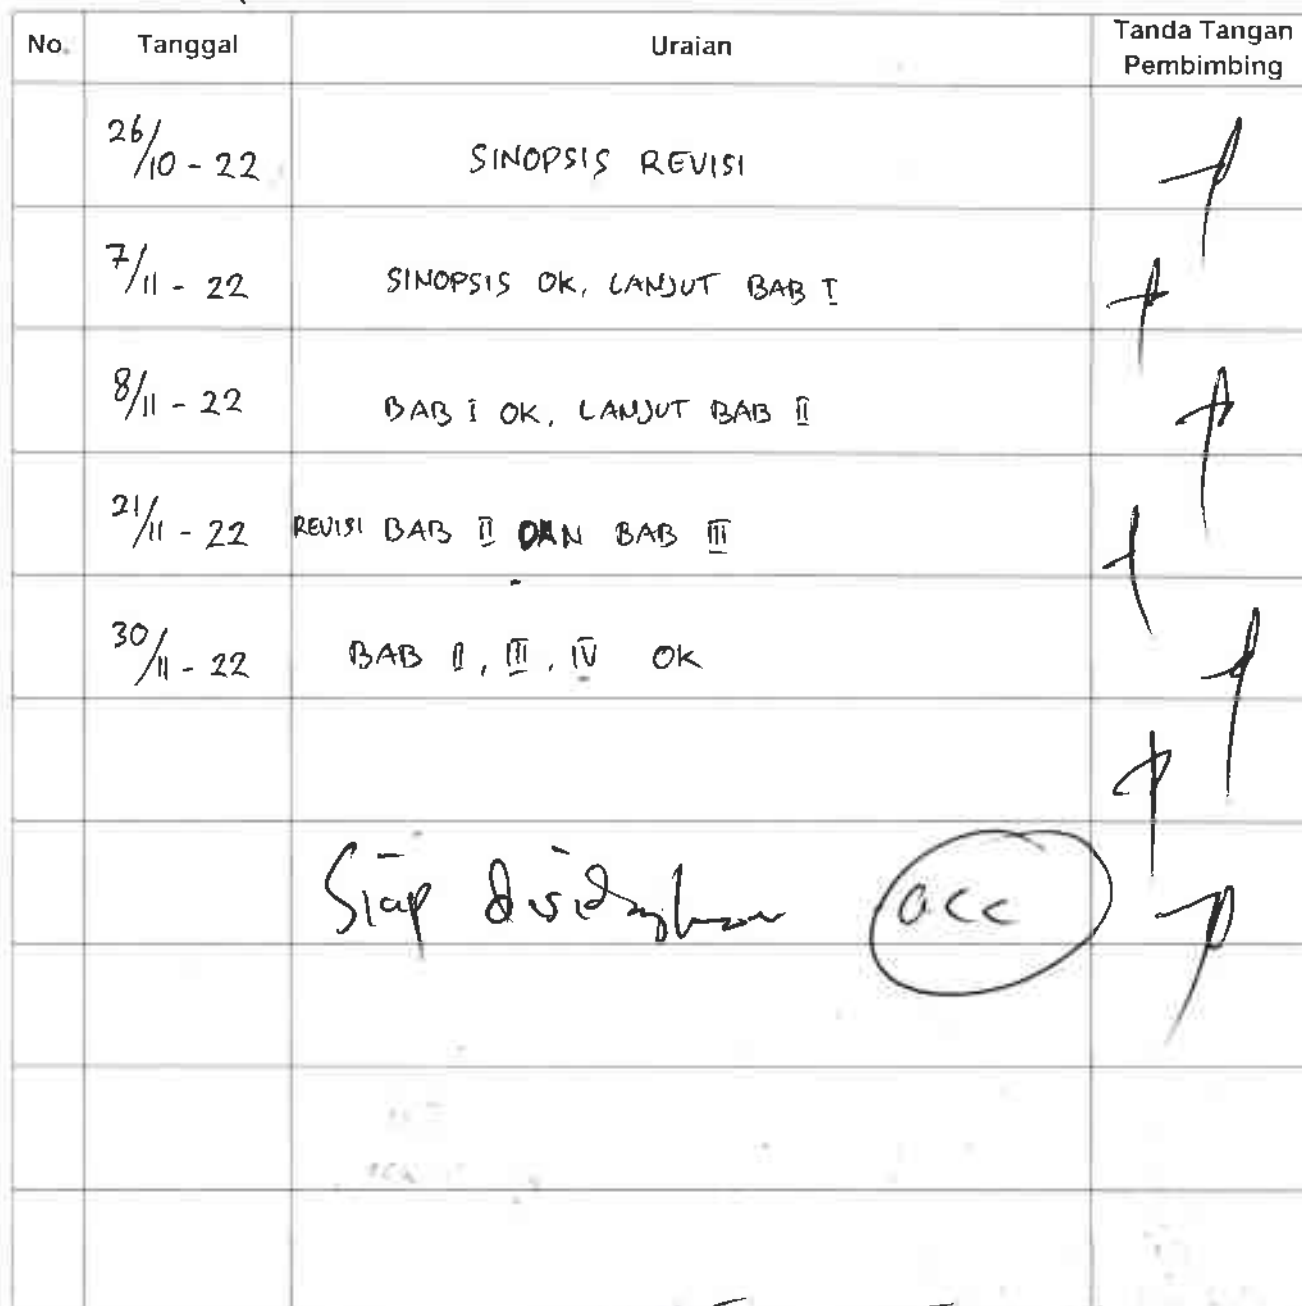 No. Tanggal Uraian Tanda Tangan Pembimbing
26/10 - 22 SINOPSIS REVISI
7/11 - 22 SINOPSIS OK, LANJUT BAB I
8/11 - 22 BAB I OK, LANJUT BAB II
21/11 - 22 REVISI BAB II DAN BAB III
30/11 - 22 BAB II, III, IV OK
Siap disidangkan acc